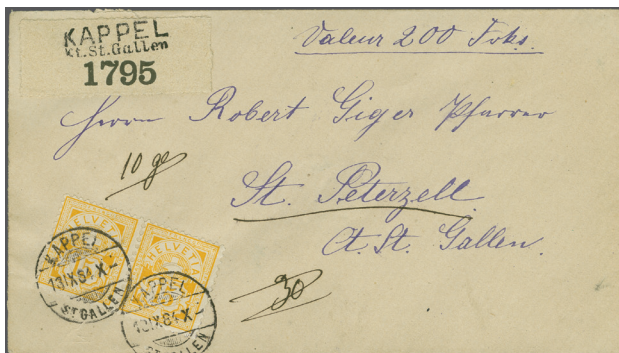 KAPPEL
Kt. St. Gallen
1795
Valeur 200 Frks.
Herrn Robert Giger Pfarrer
10 gr
St. Peterzell.
Ct. St. Gallen.
30
HELVETIA
HELVETIA
KAPPEL
13 IX 84 X –
ST GALLEN
KAPPEL
13 IX 84 X –
ST GALLEN